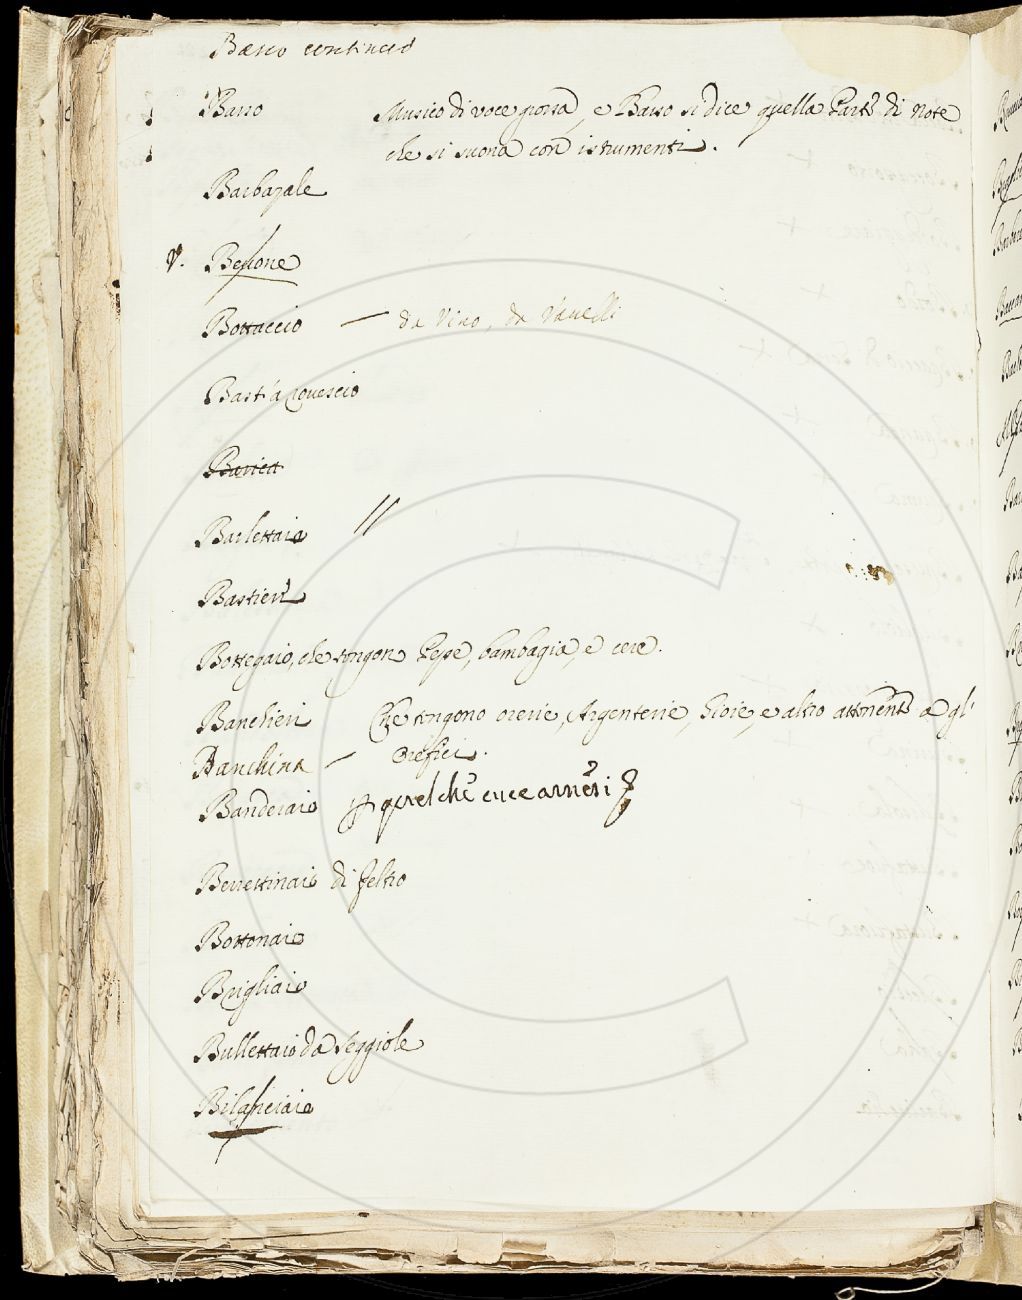 Basso continuo
Basso Musico di voce grossa, e Basso si dice quella Parte di note
che si suona con istrumenti.
Barbazale
V. Bessone
Bottaccio — da Vino, da Vaselli
Bast' a rovescio
Barlettaio //
Bastieri
Bottegaio, che tengon Pepe, bambagia, e cere.
Banchieri Che tengono orerie, Argenterie, Gioie, e altro attenente a gl'
Orefici.
Banchina —
Banderaio
Berrettinaio di feltro
Bottonaio
Brigliaio
Bullettaio da Seggiole
Bilanciaio